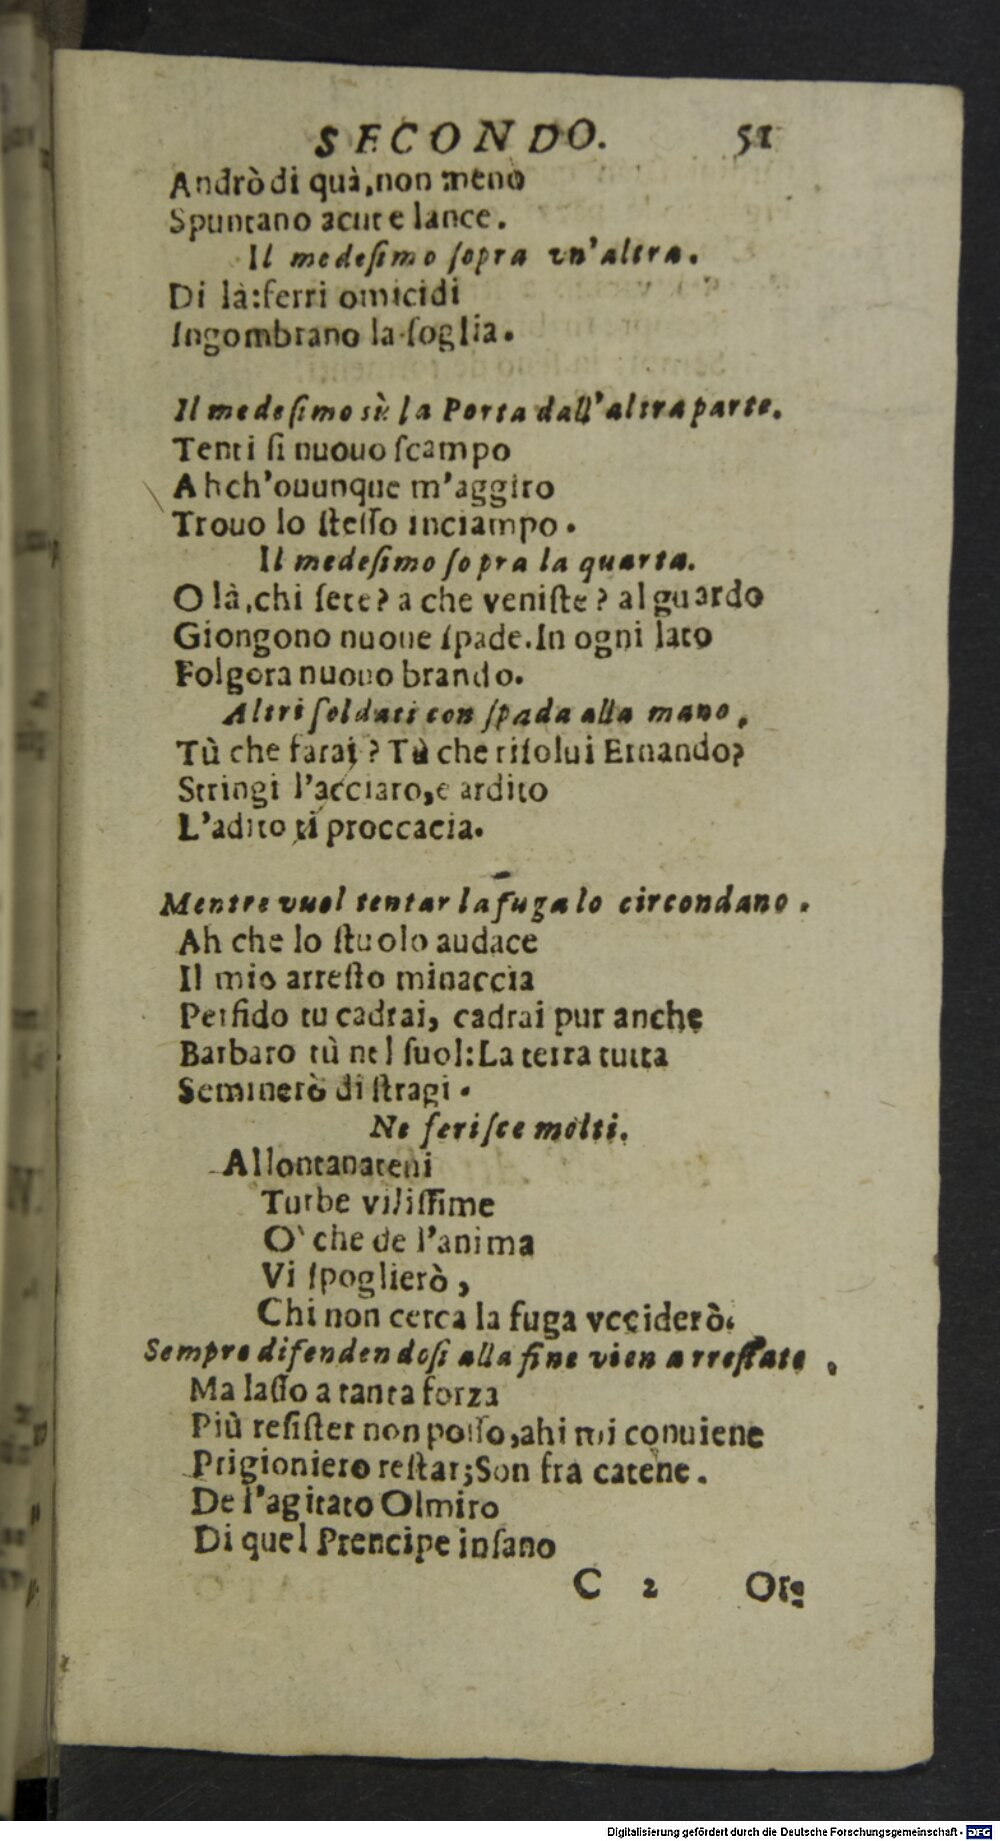 SECONDO. 51
Andrò di quà, non meno
Spuntano acute lance.
Il medeſimo ſopra vn'altra.
Di là: ferri omicidi
Ingombrano la ſoglia.
Il medeſimo sù la Porta dall'altra parte.
Tenti ſi nuouo ſcampo
Ah ch'ouunque m'aggiro
Trouo lo ſteſſo inciampo.
Il medeſimo ſopra la quarta.
O là, chi ſete? a che veniſte? al guardo
Giongono nuoue ſpade. In ogni lato
Folgora nuouo brando.
Altri ſoldati con ſpada alla mano,
Tù che farai? Tù che riſolui Ernando?
Stringi l'acciaro, e ardito
L'adito ti proccacia.
Mentre vuol tentar la fuga lo circondano.
Ah che lo ſtuolo audace
Il mio arreſto minaccia
Perfido tu cadrai, cadrai pur anche
Barbaro tù nel ſuol: La terra tutta
Seminerò di ſtragi.
Ne feriſce molti.
Allontanateui
Turbe viliſſime
O' che de l'anima
Vi ſpoglierò,
Chi non cerca la fuga vcciderò.
Sempre difendendoſi alla fine vien arreſtato.
Ma laſſo a tanta forza
Più reſiſter non poſſo, ahi mi conuiene
Prigioniero reſtar; Son fra catene.
De l'agitato Olmiro
Di quel Prencipe inſano
C 2 Ore
Digitalisierung gefördert durch die Deutsche Forschungsgemeinschaft - DFG